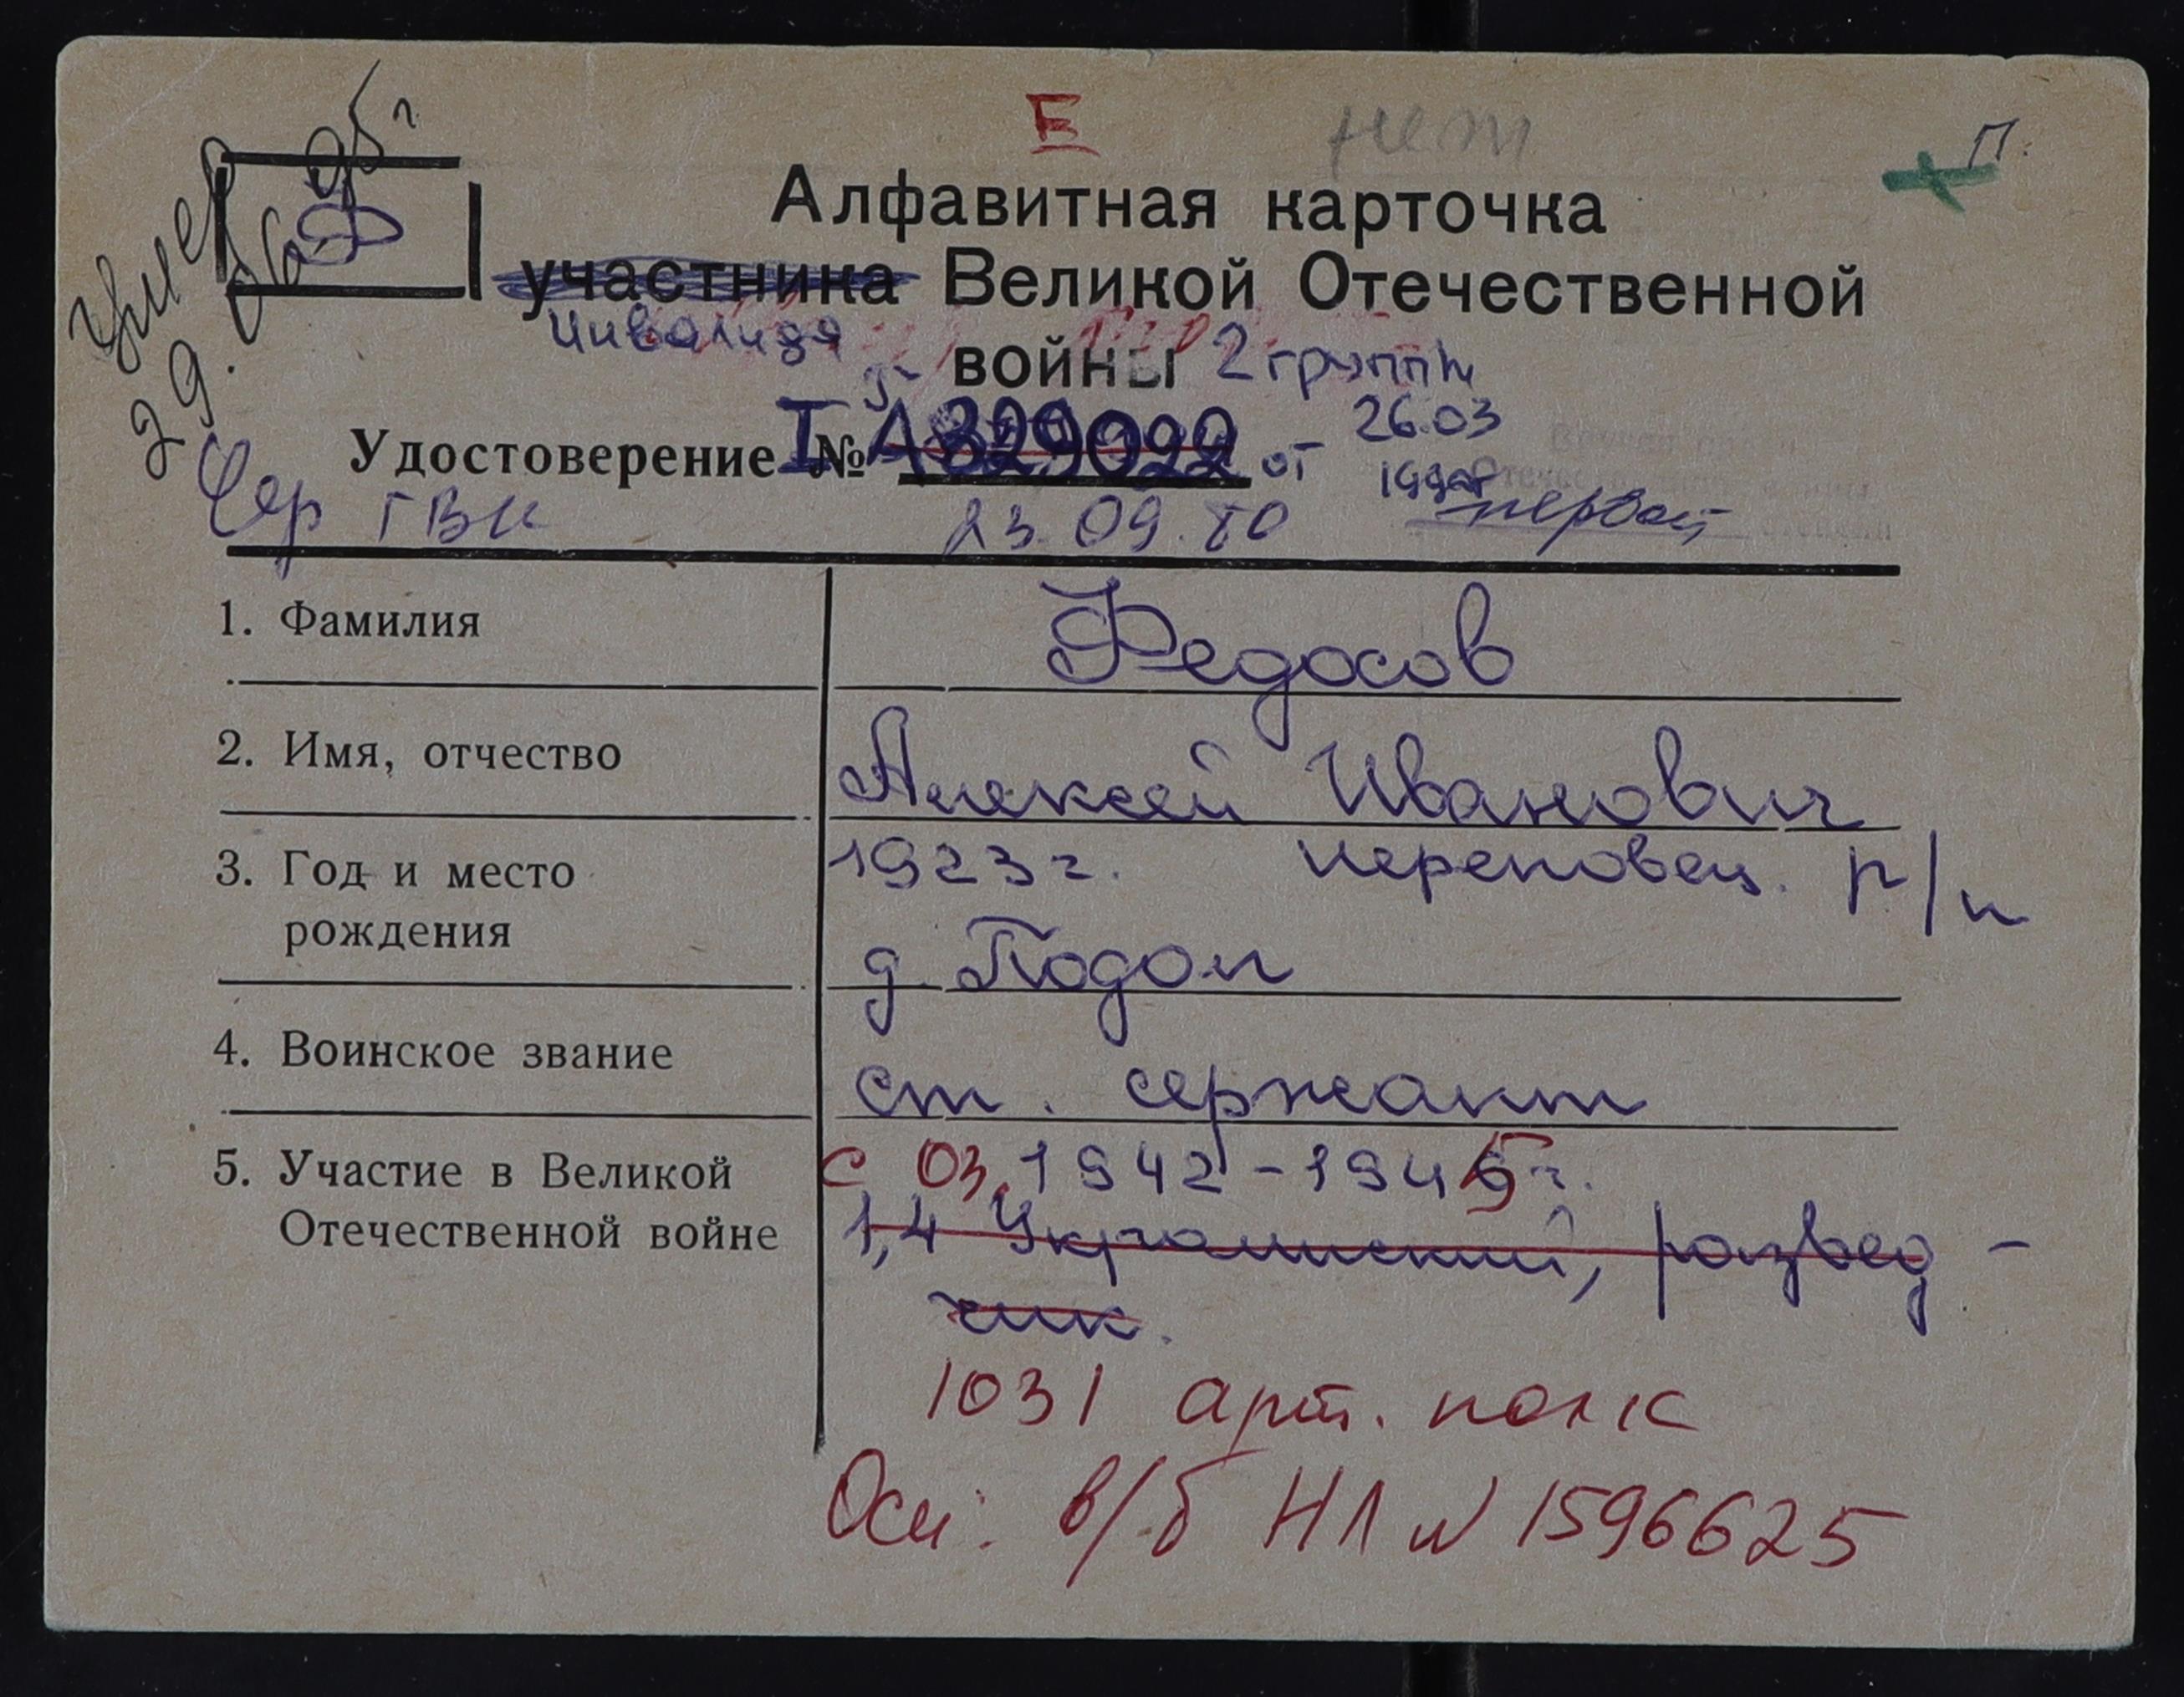 Е нет П.
Умер 29.06.95г
Ф
Алфавитная карточка
участника Великой Отечественной
инвалида войны 2 группы
Удостоверение I № А 829092 от 26.03
Чер ГВК 23.09.80 первой
1. Фамилия Федосов
2. Имя, отчество Алексей Иванович
3. Год и место 1923г. Череповец. р/н
рождения д. Подол
4. Воинское звание ст. сержант
5. Участие в Великой с 03.1942-1945г.
Отечественной войне 1,4 Украинский, развед-
чик.
1031 арт. полк
Осн: в/б НЛ N 1596625